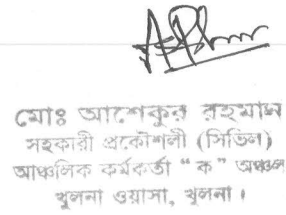 মোঃ আশেকুর রহমান
সহকারী প্রকৌশলী (সিভিল)
আঞ্চলিক কর্মকর্তা “ক” অঞ্চল
খুলনা ওয়াসা, খুলনা।